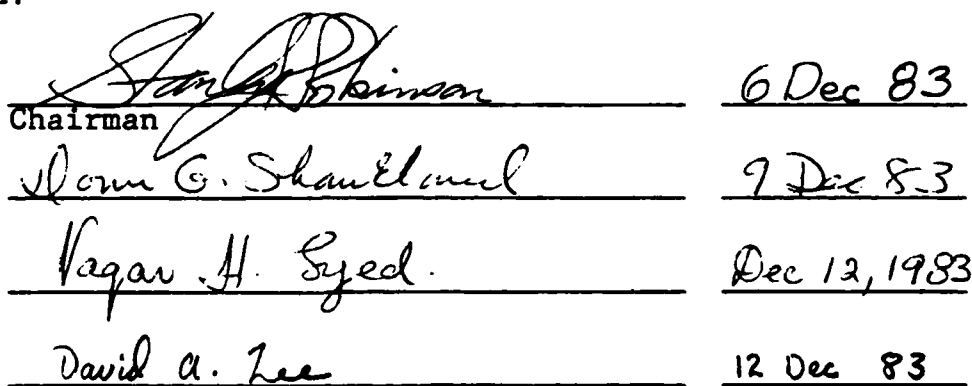 Stanley Robinson 6 Dec 83
Chairman
Donn G. Shankland 9 Dec 83
Vaqar H. Syed. Dec 12, 1983
David A. Lee 12 Dec 83